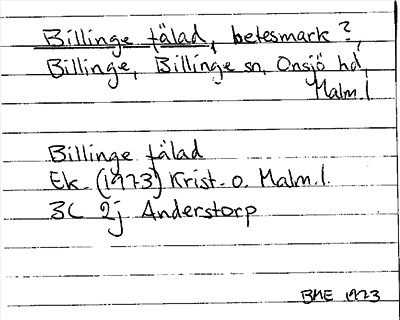 Billinge fälad, betesmark?,
Billinge, Billinge sn, Onsjö hd,
Malm.l
Billinge fälad
Ek. (1973) Krist. o. Malm.l.
3C 2j Anderstorp
BME 1973